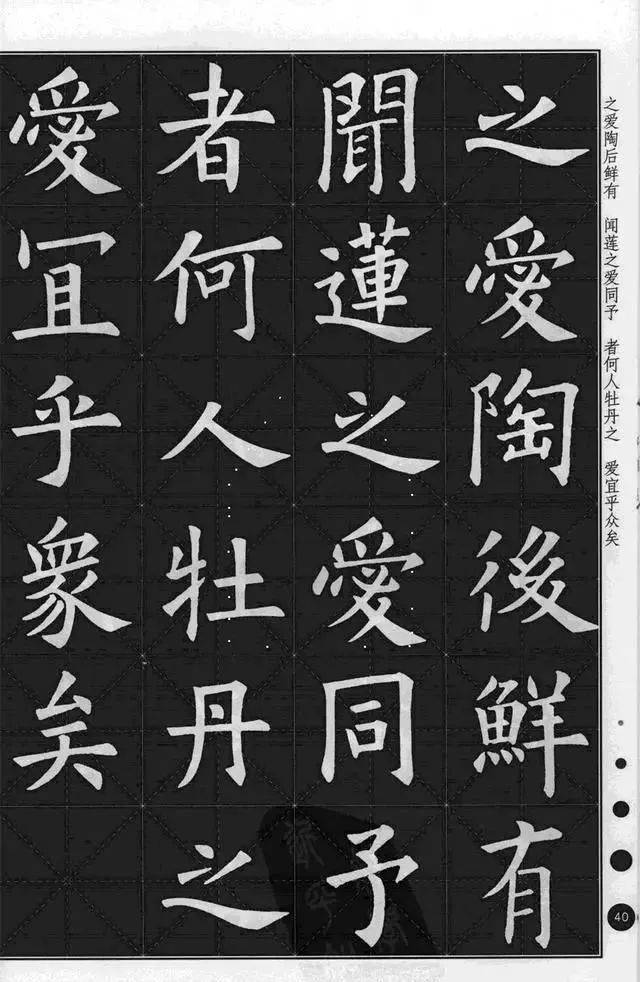 之愛陶後鮮有
聞蓮之愛同予
者何人牡丹之
愛冝乎衆矣
之爱陶后鲜有 闻莲之爱同予 者何人牡丹之 爱宜乎众矣
40